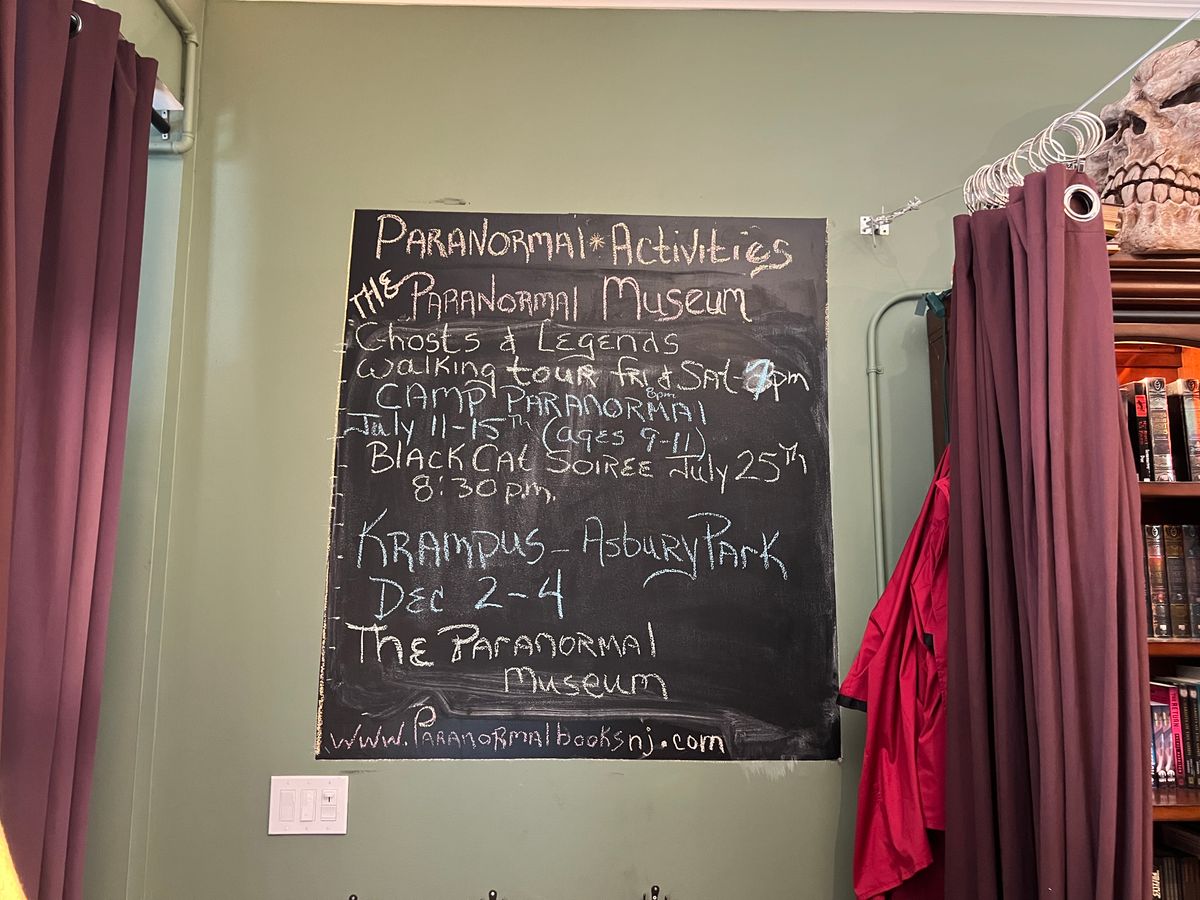 PARANORMAL * Activities
THE PARANORMAL Museum
Ghosts & Legends
Walking tour fri & Sat - 7pm
8pm
CAMP PARANORMAL
July 11-15th (ages 9-11)
BLACK Cat SOIREE July 25th
8:30pm.
KRAMPUS - Asbury Park
Dec 2-4
The Paranormal
Museum
www.Paranormalbooksnj.com